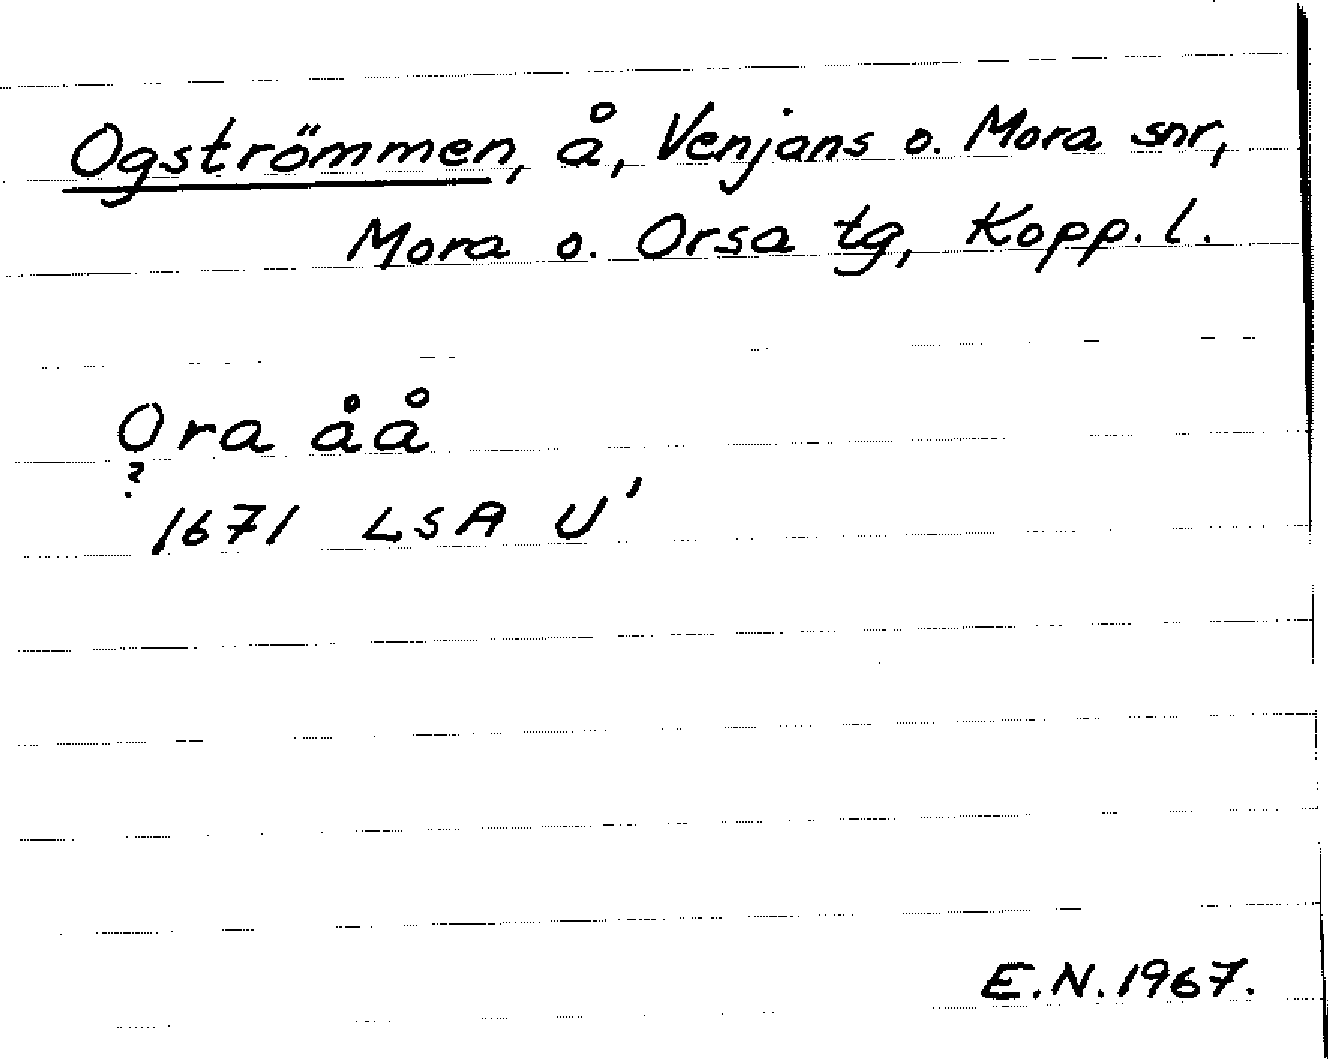 Ogströmmen, å, Venjans o. Mora snr,
Mora o. Orsa tg, Kopp. l.
Ora åå
?
1671 LSA U'
E.N. 1967.